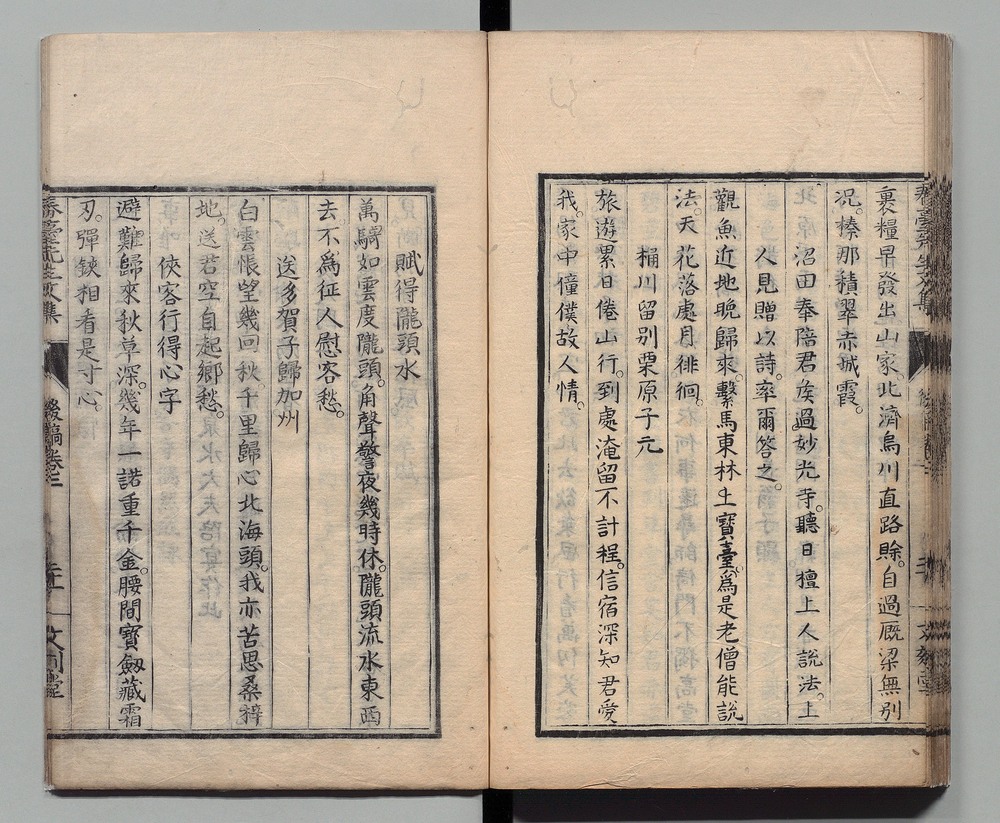 裹糧早發出山家北濟烏川直路賖。自過厩梁無別
況。榛那積翠赤城霞。
沼田奉陪君矦過妙光寺。聽日擅上人說法。上
人見贈以詩。率爾答之。
觀魚近地晚歸來。繫馬東林土寶臺。爲是老僧能說
法。天花落處月徘徊。
桶川留別栗原子元
旅遊累日倦山行。到處淹留不計程。信宿深知君愛
我。家中僮僕故人情。
賦得隴頭水
萬騎如雲度隴頭。角聲警夜幾時休。隴頭流水東西
去不爲征人慰客愁。
送多賀子歸加州
白雲悵望幾回秋千里歸心北海頭。我亦苦思桑梓
地。送君空自起鄉愁。
俠客行得心字
避難歸來秋草深。幾年一諾重千金。腰間寶劒藏霜
刃。彈鋏相看是寸心。
春臺先生文集
後稿卷三